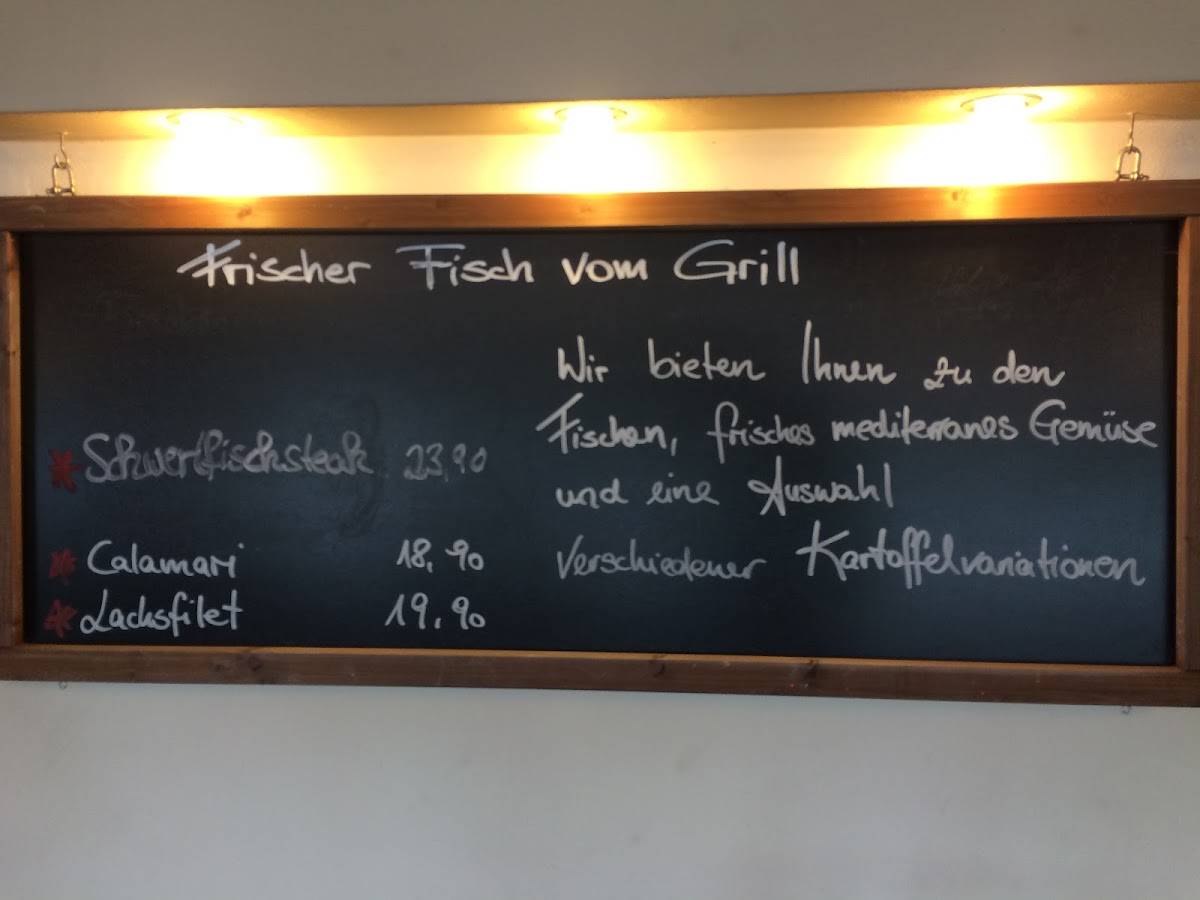 Frischer Fisch vom Grill
* Schwertfischsteak 23,90
* Calamari 18,90
* Lachsfilet 19.90
Wir bieten Ihnen zu den
Fischen, frisches mediterranes Gemüse
und eine Auswahl
verschiedener Kartoffelvariationen